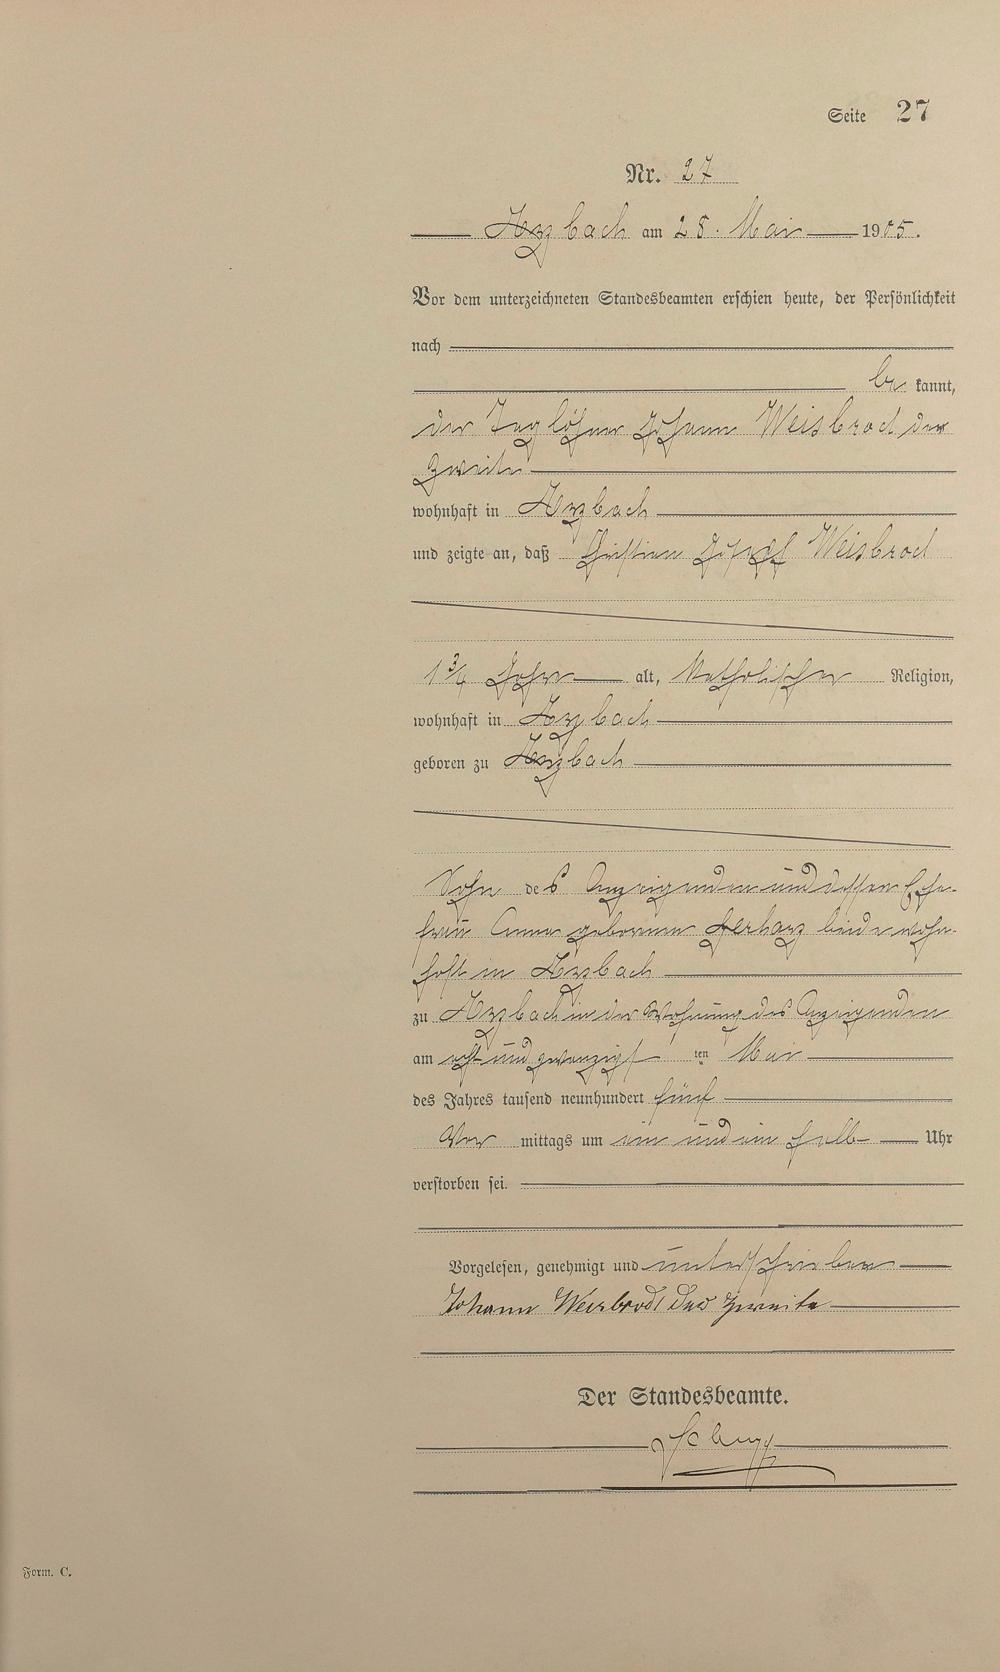 Seite 27
Nr. 27
Arzbach am 28. Mai 1905.
Vor dem unterzeichneten Standesbeamten erschien heute, der Persönlichkeit
nach
be kannt,
der Taglöhner Johann Weisbrod der
zweite
wohnhaft in Arzbach
und zeigte an, daß Christian Josef Weisbrod
1 3/4 Jahre alt, katholischer Religion,
wohnhaft in Arzbach
geboren zu Arzbach
Sohn des Anzeigenden und dessen Ehe-
frau Anna geborenen Gerharz beide wohn-
haft in Arzbach
zu Arzbach in der Wohnung des Anzeigenden
am acht und zwanzigsten Mai
des Jahres tausend neunhundert fünf
Vor mittags um ein und ein halb Uhr
verstorben sei.
Vorgelesen, genehmigt und unterschrieben
Johann Weisbrod der Zweite
Der Standesbeamte.
Form. C.